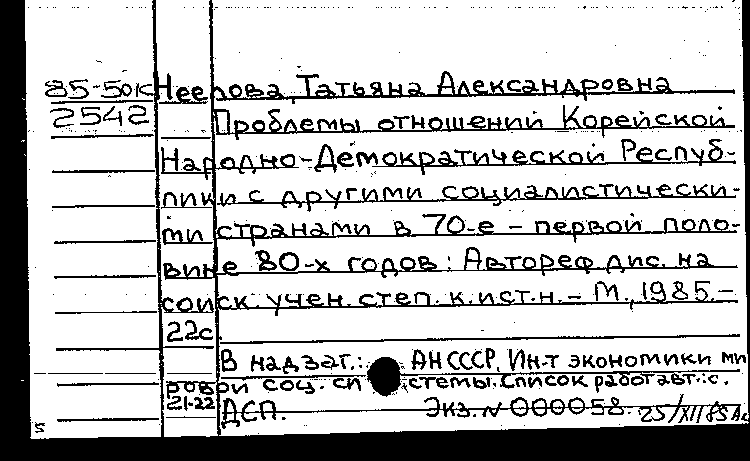 85-50к Неерова, Татьяна Александровна
2542 Проблемы отношений Корейской
Народно-Демократической Респуб-
лики с другими социалистически-
ми странами в 70-е - первой поло-
вине 80-х годов: Автореф. дис. на
соиск. учен. степ. к.ист.н. - М., 1985. -
22с.
В надзаг.: АН СССР, Ин-т экономики ми
ровой соц. системы. Список работ авт.: с.
21-22
ДСП. Экз. № 000058. 25/XII 85